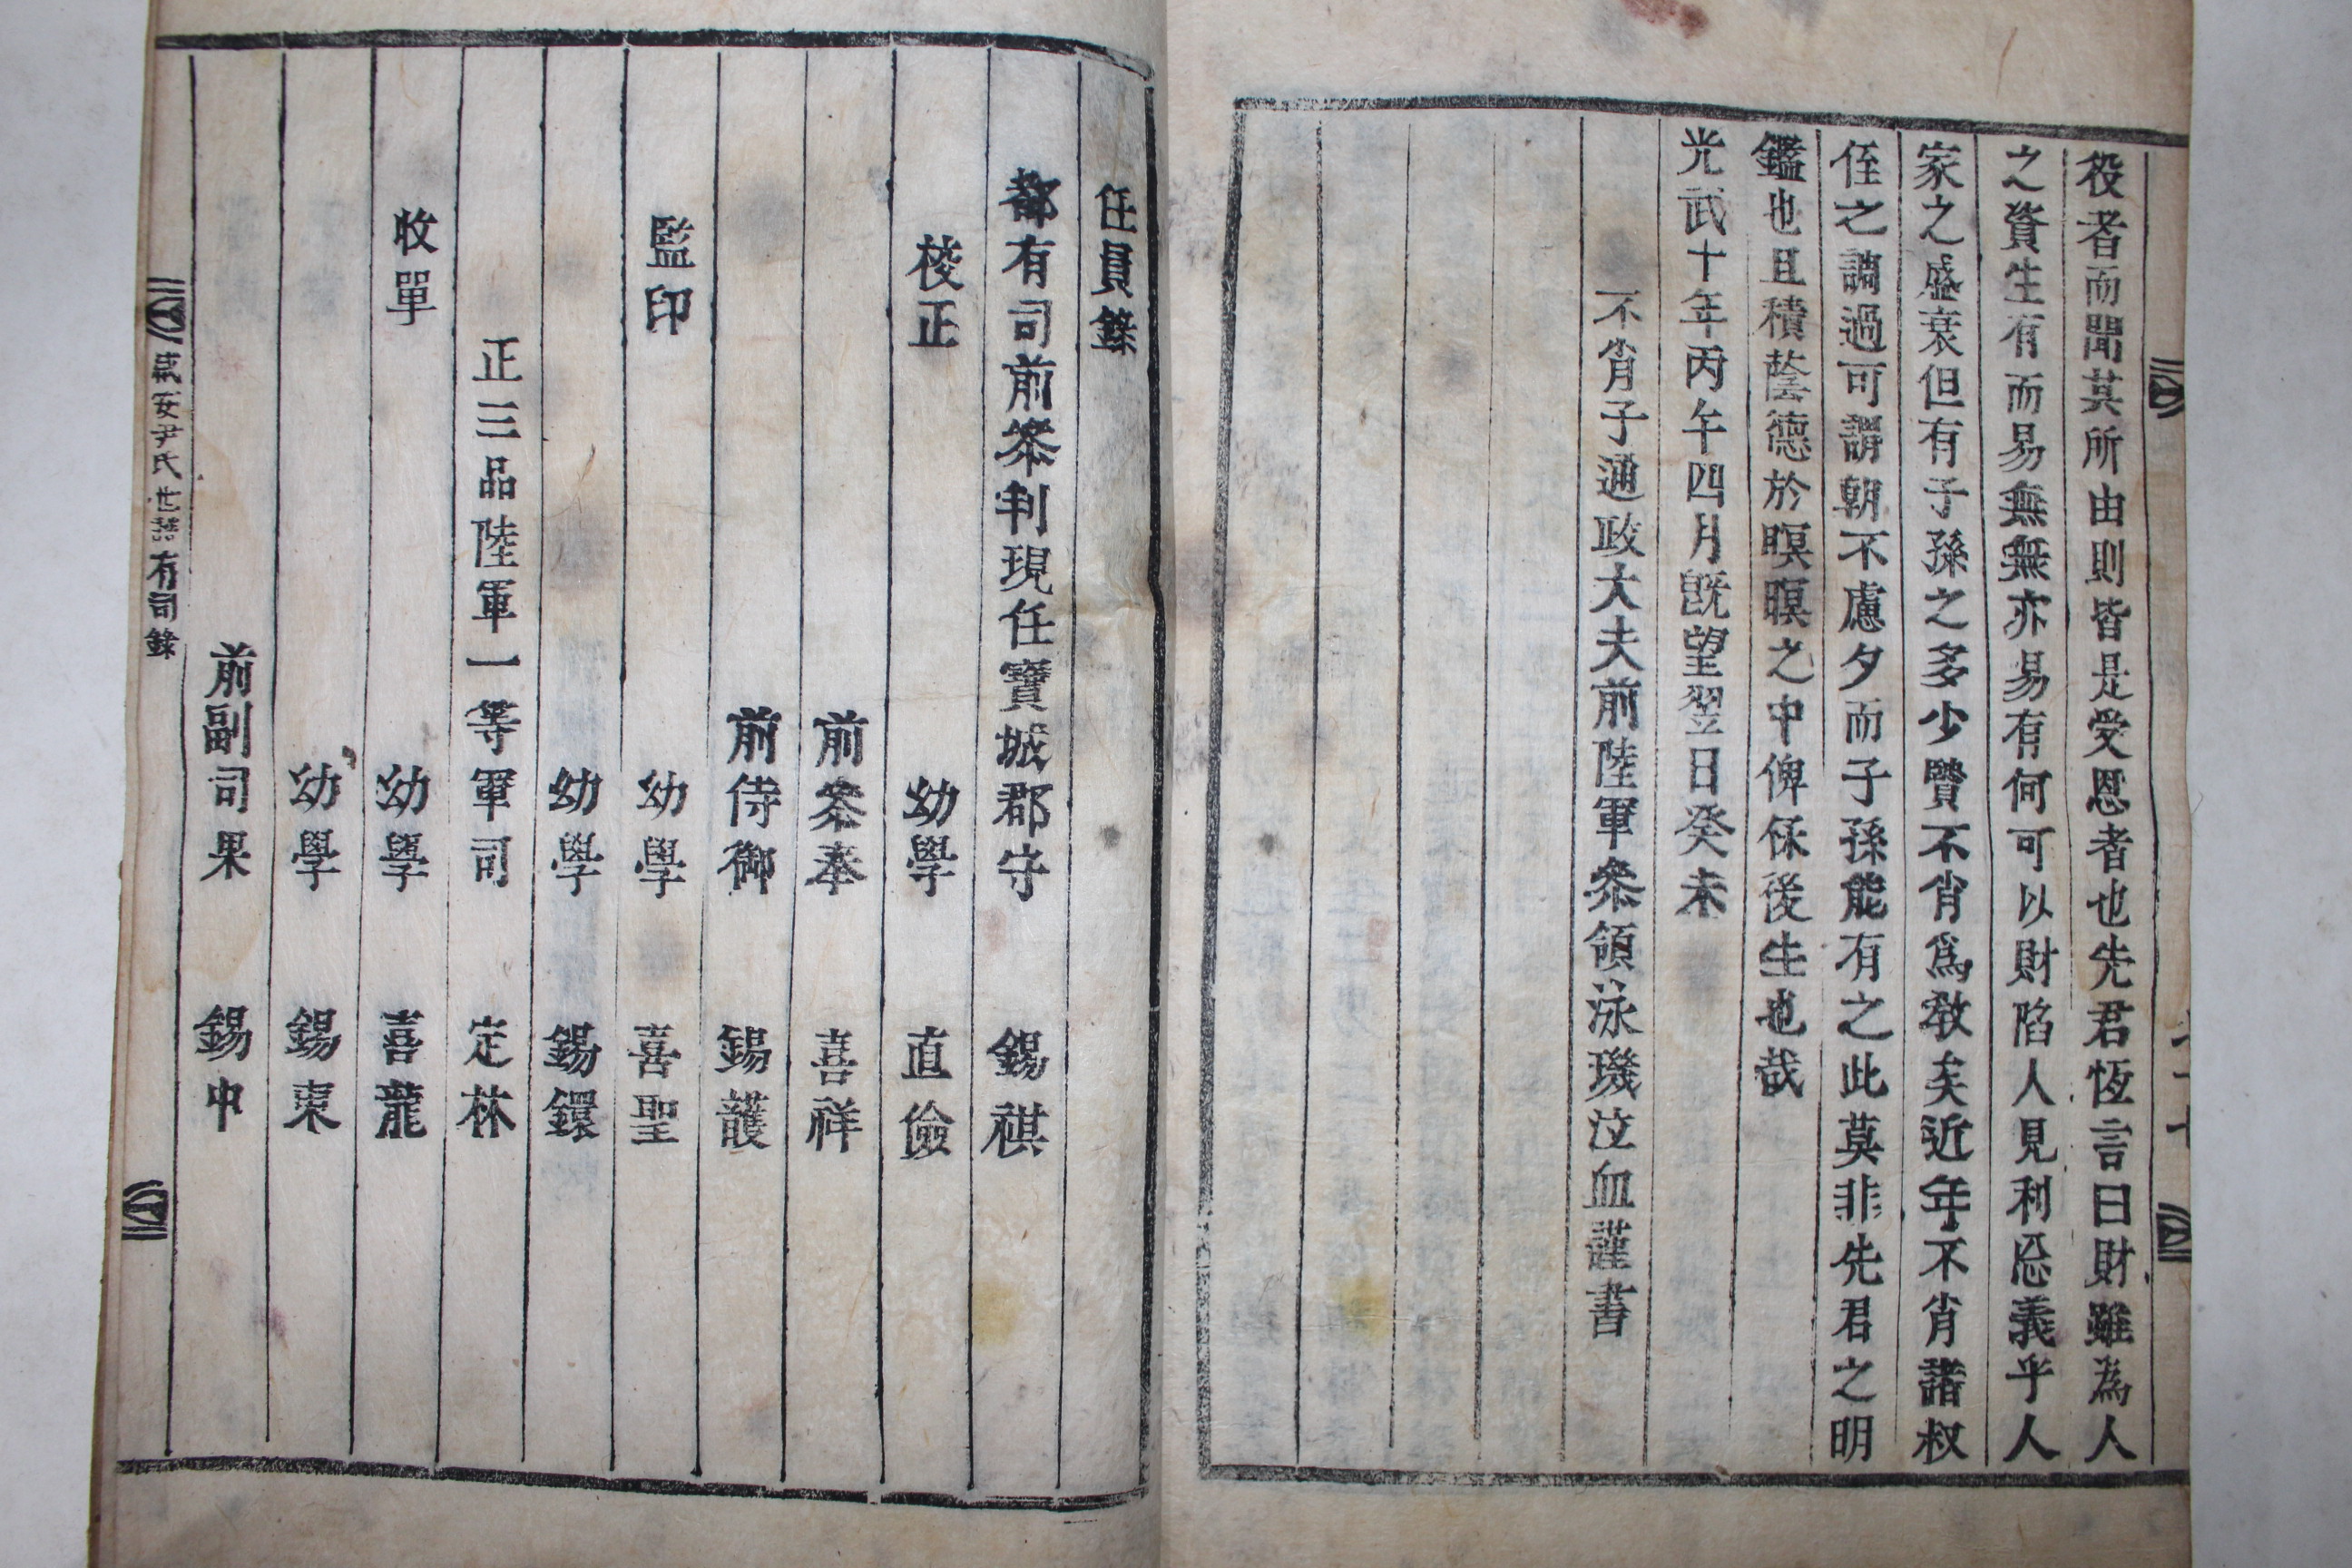 役者而聞其所由則皆是受恩者也先君恆言曰財雖為人
之資生有而易無無亦易有何可以財陷人見利忘義乎人
家之盛衰但有子孫之多少賢不肖爲敎矣近年不肖諸叔
侄之謫過可謂朝不慮夕而子孫能有之此莫非先君之明
鑑也且積蔭德於暝暝之中俾保後生也哉
光武十年丙午四月旣望翌日癸未
不肖子通政大夫前陸軍叅領泳璣泣血謹書
任員錄
都有司前叅判現任寶城郡守 錫祺
校正 幼學 直儉
前叅奉 喜祥
前侍御 錫頀
監印 幼學 喜聖
幼學 錫鐶
正三品陸軍一等軍司 定林
收單 幼學 喜龍
幼學 錫東
前副司果 錫中
咸安尹氏世譜有司錄